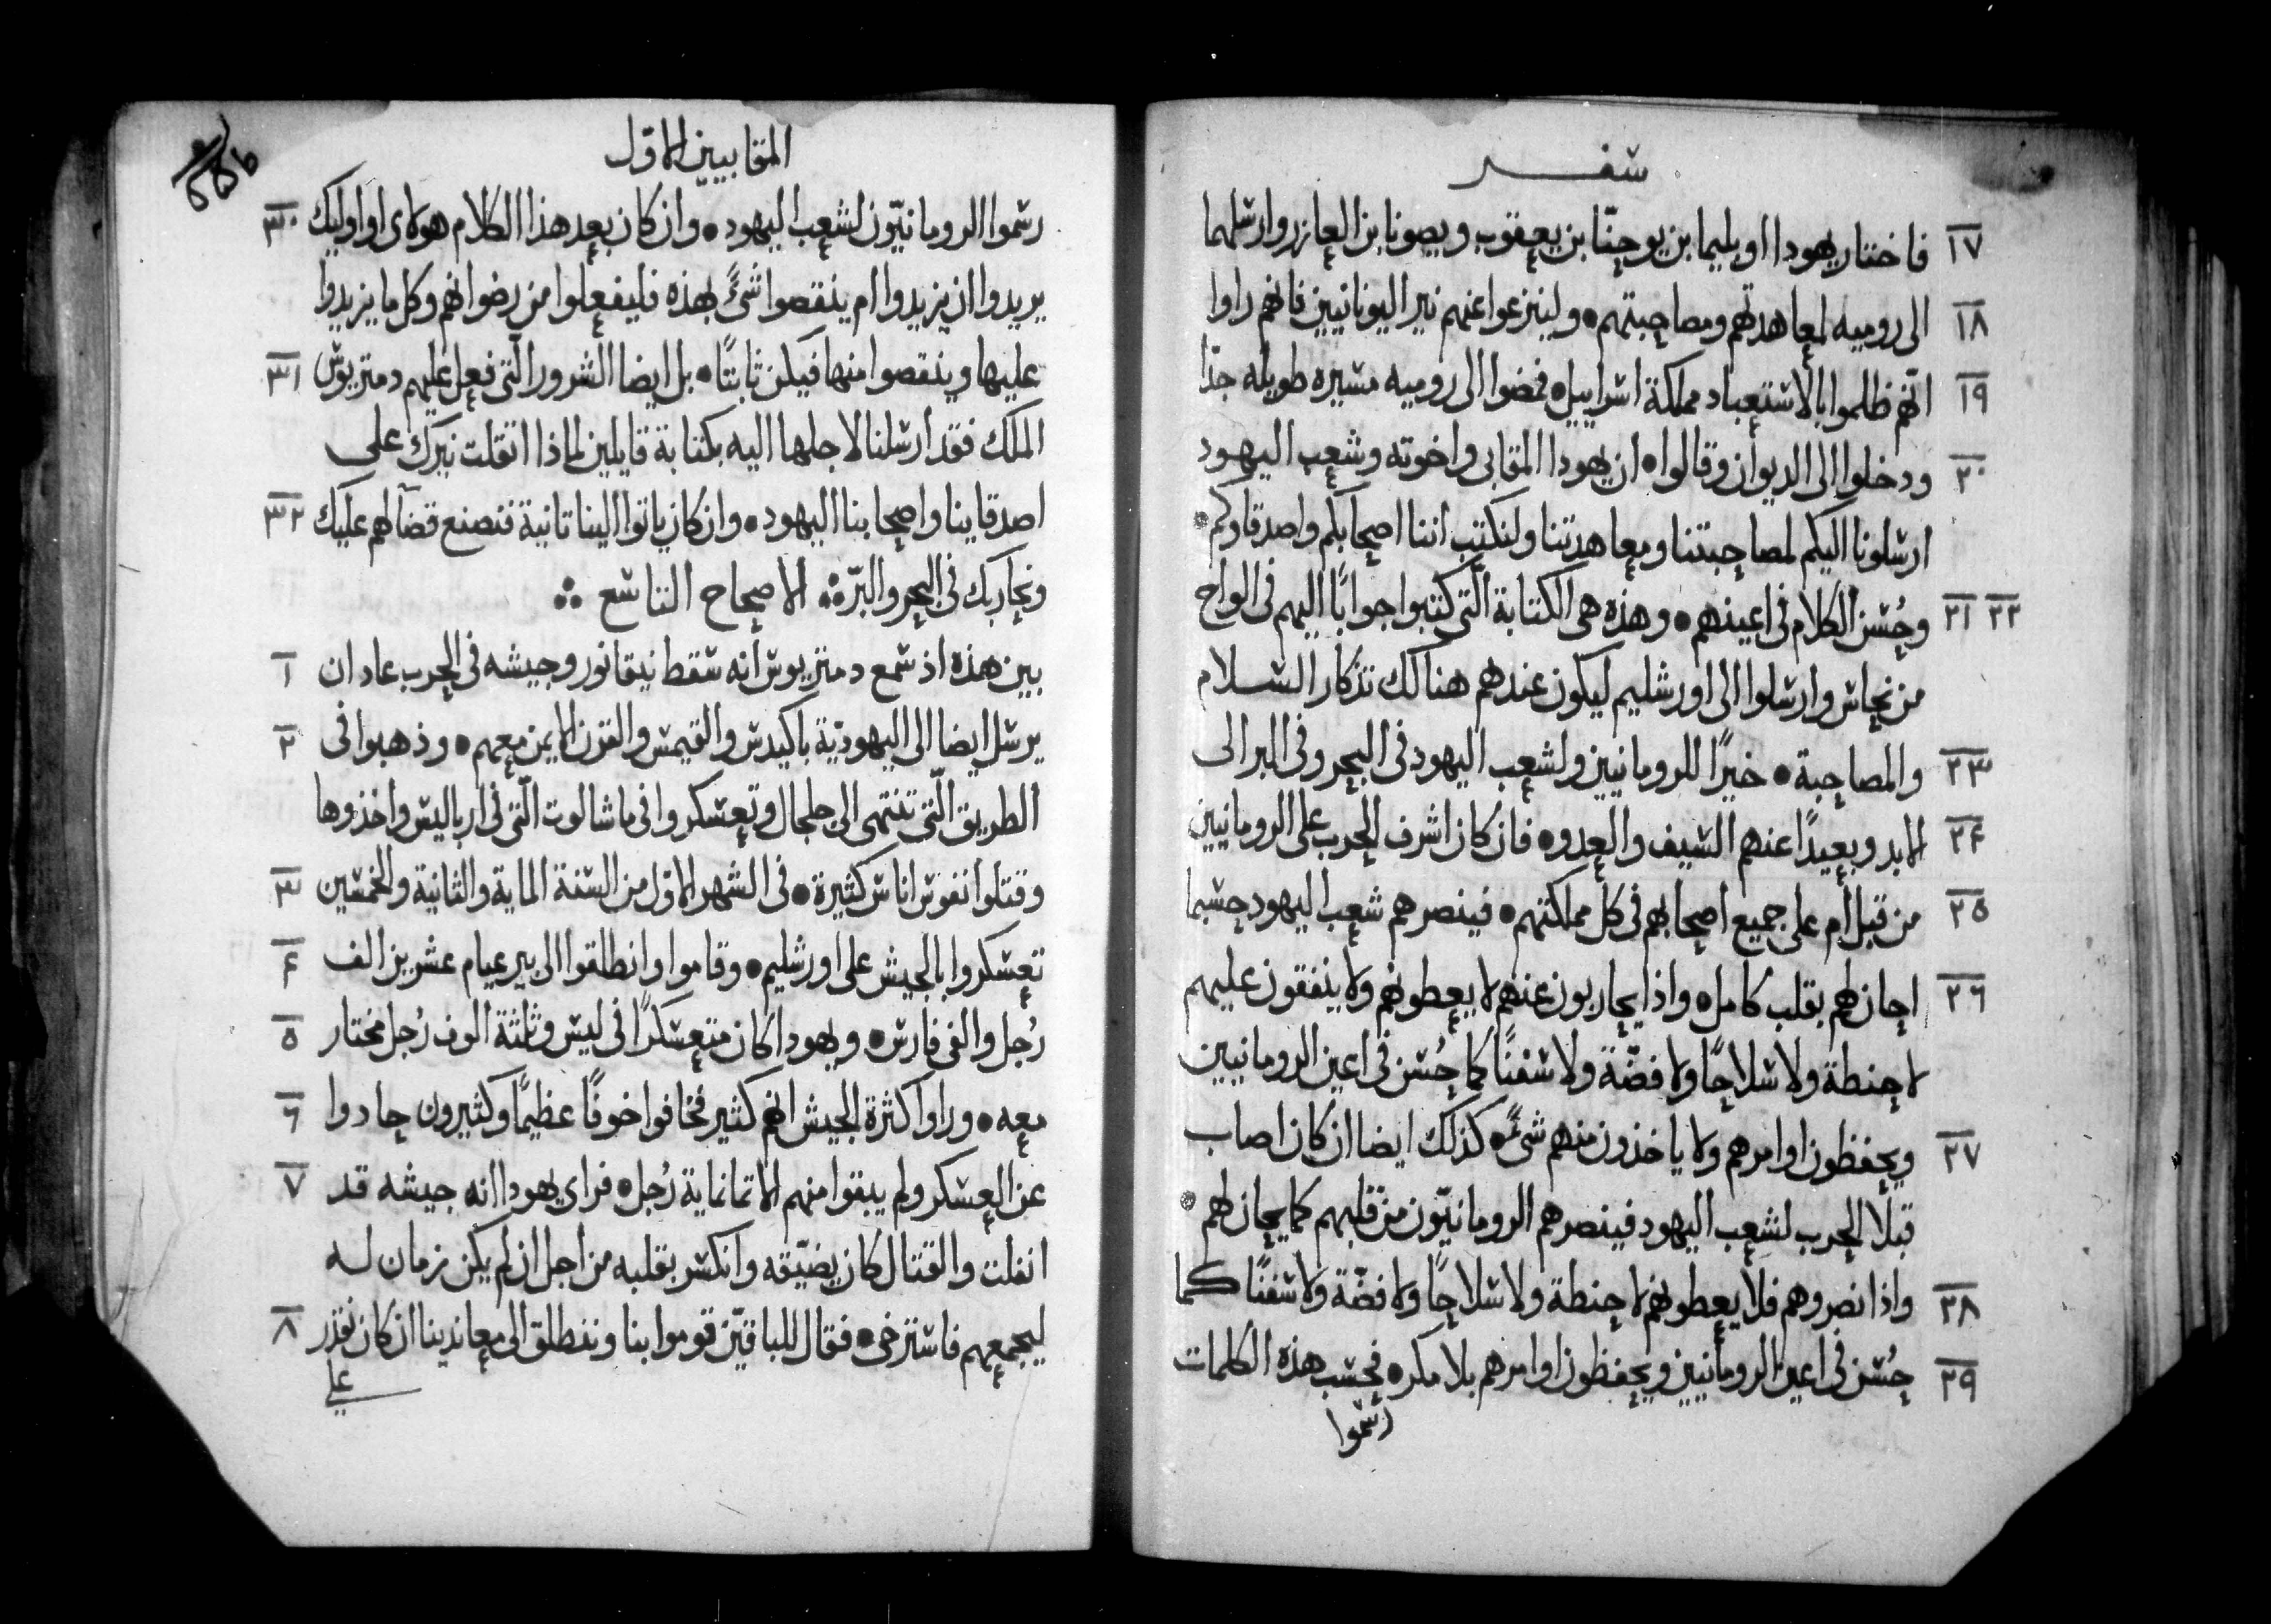 سفر
١٧ فاختار يهودا اوبليما بن يوحنّا بن يعقوب ويصونا بن العازر وارسلهما
١٨ الى روميه لمعاهدتهم ومصاحبتهم • ولينزعوا عنهم نير اليونانيين فانهم راوا
١٩ انّهم ظلموا بالاستعباد مملكة اسراييل • فمضوا الى روميه مسيره طويله جدّا
٢٠ ودخلوا الى الديوان وقالوا • ان يهودا المقابى واخوته وشعب اليهود
ارسلونا اليكم لمصاحبتنا ومعاهدتنا ولنكتب اننا اصحابكم واصدقاوكم •
٢١ ٢٢ وحُسن الكلام فى اعينهم • وهذه هى الكتابة الّتى كتبوا جوابًا اليهم فى الواح
من نحاس وارسلوا الى اورشليم ليكون عندهم هنالك تذكار السلام
٢٣ والمصاحبة • خيرًا للرومانيين ولشعب اليهود فى البحر وفى البر الى
٢٤ الابد وبعيدًا عنهم السيف والعدو • فان كان اشرف الحرب على الرومانيين
٢٥ من قبل ام على جميع اصحابهم فى كل مملكتهم • فينصرهم شعب اليهود حسبما
٢٦ احان لهم بقلب كامل • واذا يحاربون عنهم لا يعطونهم ولا ينفقون عليهم
لا حنطة ولا سلاحًا ولا فضّة ولا سفنًا كما حُسن فى اعين الرومانيين
٢٧ ويحفظون اوامرهم ولا ياخذون منهم شىءً • كذلك ايضا ان كان اصاب
قبلا الحرب لشعب اليهود فينصرهم الرومانيّون من قلبهم كما يحان لهم •
٢٨ واذا نصروهم فلا يعطونهم لا حنطة ولا سلاحًا ولا فضّة ولا سفنًا كما
٢٩ حُسن فى اعين الرومانيين ويحفظون اوامرهم بلا مكر • فحسب هذه الكلمات
رسموا
المقابيين الاوّل
رسموا الرومانيّون لشعب اليهود • وان كان بعد هذا الكلام هولاى او اوليك ٣٠
يريدوا ان يزيدوا ام ينقصوا شىءً بهذه فليفعلوا من رضوانهم وكل ما يزيدوا
عليها وينقصوا منها فيكن ثابتًا • بل ايضا الشرور الّتى فعل عليهم دمتريوس ٣١
الملك فقد ارسلنا لاجلها اليه بكتابة قايلين لماذا اثقلت نيرك على
اصدقاينا واصحابنا اليهود • وان كان ياتوا الينا ثانية فنصنع قضآ لهم عليك ٣٢
ونحاربك فى البحر والبرّ ∴ الاصحاح التاسع ∴
بين هذه اذ سمع دمتريوس انه سقط نيقانور وجيشه فى الحرب عاد ان ١
يرسل ايضا الى اليهوديّة باكيدس والقيمس والقرن الايمن معهم • وذهبوا فى ٢
الطريق الّتى تنتهى الى جلجال وتعسكروا فى ماشالوت الّتى فى ارباليس واخذوها
وقتلوا نفوس اناس كثيرة • فى الشهر الاوّل من السنة الماية والثانية والخمسين ٣
تعسكروا بالجيش على اورشليم • وقاموا وانطلقوا الى بير عيام عشرين الف ٤
رُجل والفى فارس • ويهودا كان متعسكرًا فى ليس وثلثة الوف رُجل مختار ٥
معه • وراوا كثرة الجيش انهم كثير فخافوا خوفًا عظيمًا وكثيرون حادوا ٦
عن العسكر ولم يبقوا منهم الا ثمانماية رُجل • فراى يهودا انه جيشه قد ٧
انفلت والقتال كان يضيّقه وانكسر بقلبه من اجل ان لم يكن زمان له
ليجمعهم فاسترخى • فقال للباقيّن قوموا بنا وننطلق الى معاندينا ان كان نقدر ٨
على